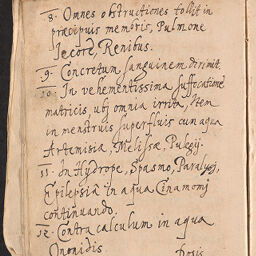 8. Omnes obstruitiones tollit in
præcipuis membris, Pulmone
Jecore, Renibus.
9. Concretum sanguinem dirimit.
10. In vehementissima suffocatione
matricis ubj omnia irrita, Item
in menstruis superfluis cun aqua
Artemisia, Melissæ, Pulegij.
11. In Hydrope, Spasmo, Paralysj,
Epilepsia in aqua Cinamomj
continuando.
12. Contra calculum in aqua
Ononidis. Dosis